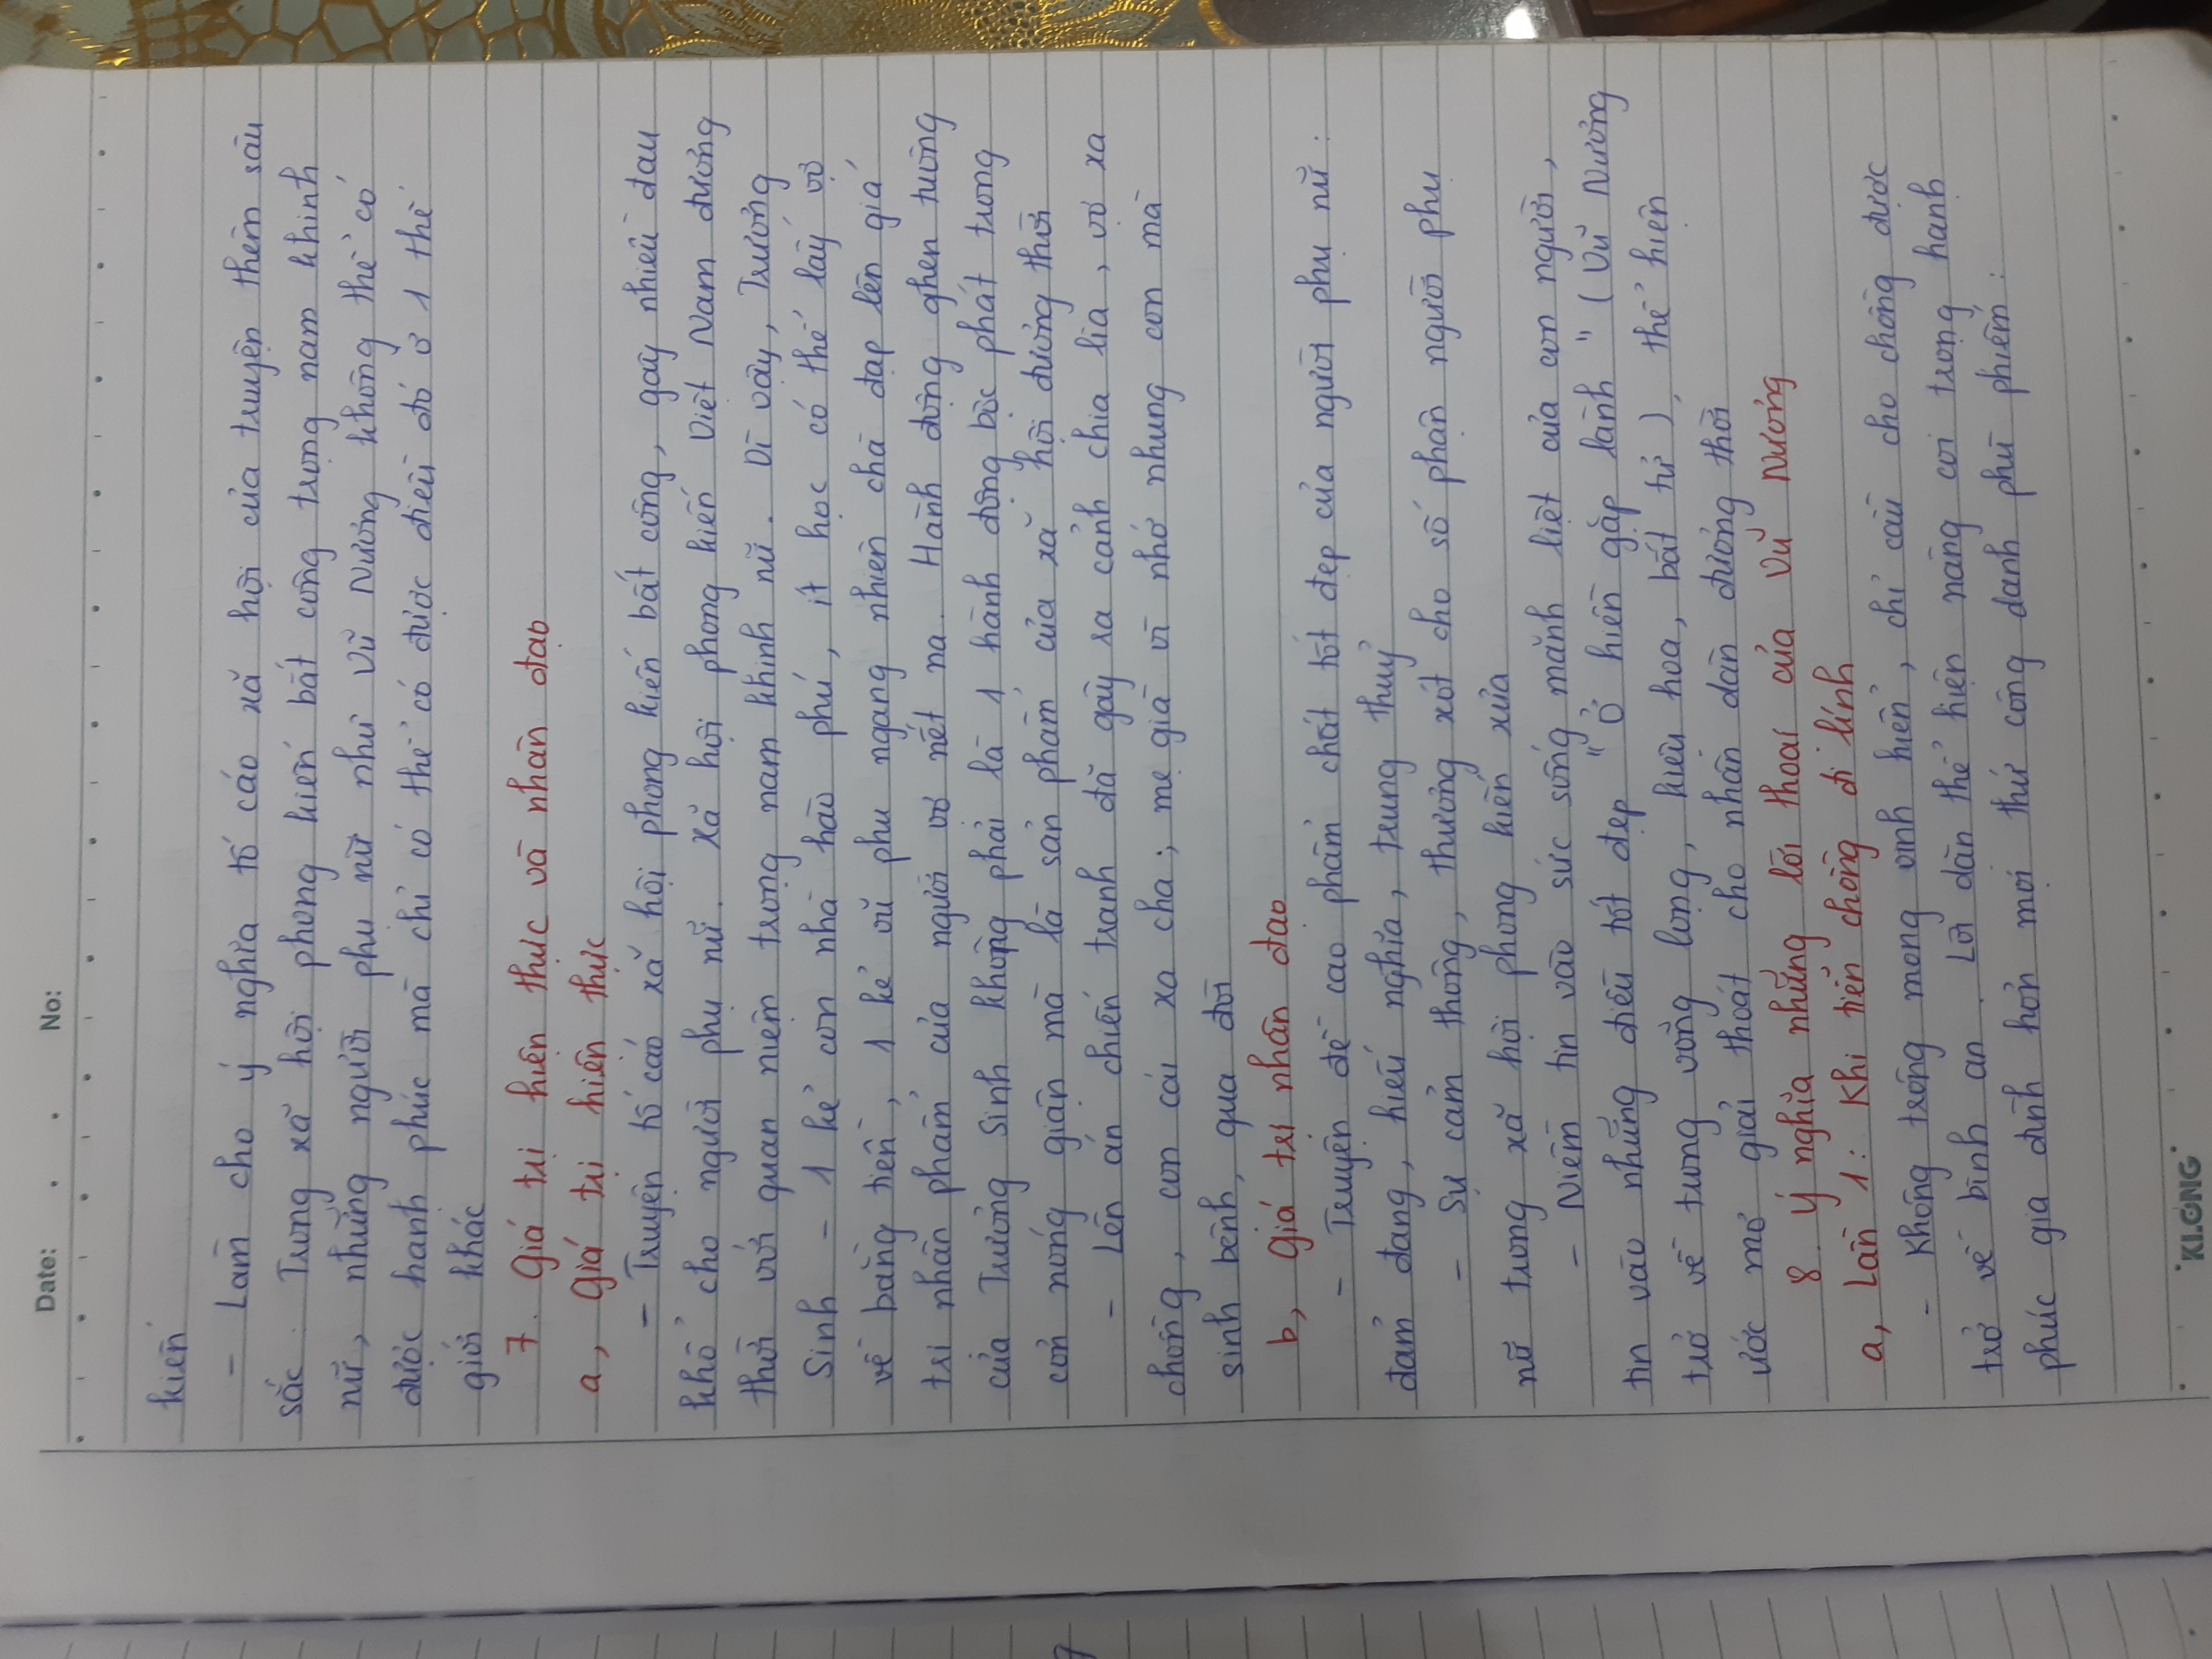 Date: . . No:
kiến
- Làm cho ý nghĩa tố cáo xã hội của truyện thêm sâu
sắc. Trong xã hội phong kiến bất công trọng nam khinh
nữ, những người phụ nữ như Vũ Nương không thể có
được hạnh phúc mà chỉ có thể có được điều đó ở 1 thế
giới khác
7. Giá trị hiện thực và nhân đạo
a, Giá trị hiện thực
- Truyện tố cáo xã hội phong kiến bất công, gây nhiều đau
khổ cho người phụ nữ. Xã hội phong kiến Việt Nam đương
thời với quan niệm trọng nam khinh nữ. Vì vậy, Trương
Sinh - 1 kẻ con nhà hào phú, ít học có thể lấy vợ
về bằng tiền, 1 kẻ vũ phu ngang nhiên chà đạp lên giá
trị nhân phẩm của người vợ nết na. Hành động ghen tuông
của Trương Sinh không phải là 1 hành động bộc phát trong
cơn nóng giận mà là sản phẩm của xã hội đương thời
- Lên án chiến tranh đã gây ra cảnh chia lìa, vợ xa
chồng, con cái xa cha; mẹ già vì nhớ nhung con mà
sinh bệnh, qua đời
b, Giá trị nhân đạo
- Truyện đề cao phẩm chất tốt đẹp của người phụ nữ:
đảm đang, hiếu nghĩa, trung thuỷ
- Sự cảm thông, thương xót cho số phận người phụ
nữ trong xã hội phong kiến xưa
- Niềm tin vào sức sống mãnh liệt của con người,
tin vào những điều tốt đẹp "Ở hiền gặp lành" (Vũ Nương
trở về trong võng lọng, kiệu hoa, bất tử), thể hiện
ước mơ giải thoát cho nhân dân đương thời
8. Ý nghĩa những lời thoại của Vũ Nương
a, Lần 1: Khi tiễn chồng đi lính
- Không trông mong vinh hiển, chỉ cầu cho chồng được
trở về bình an. Lời dặn thể hiện nàng coi trọng hạnh
phúc gia đình hơn mọi thứ công danh phù phiếm.
KLONG